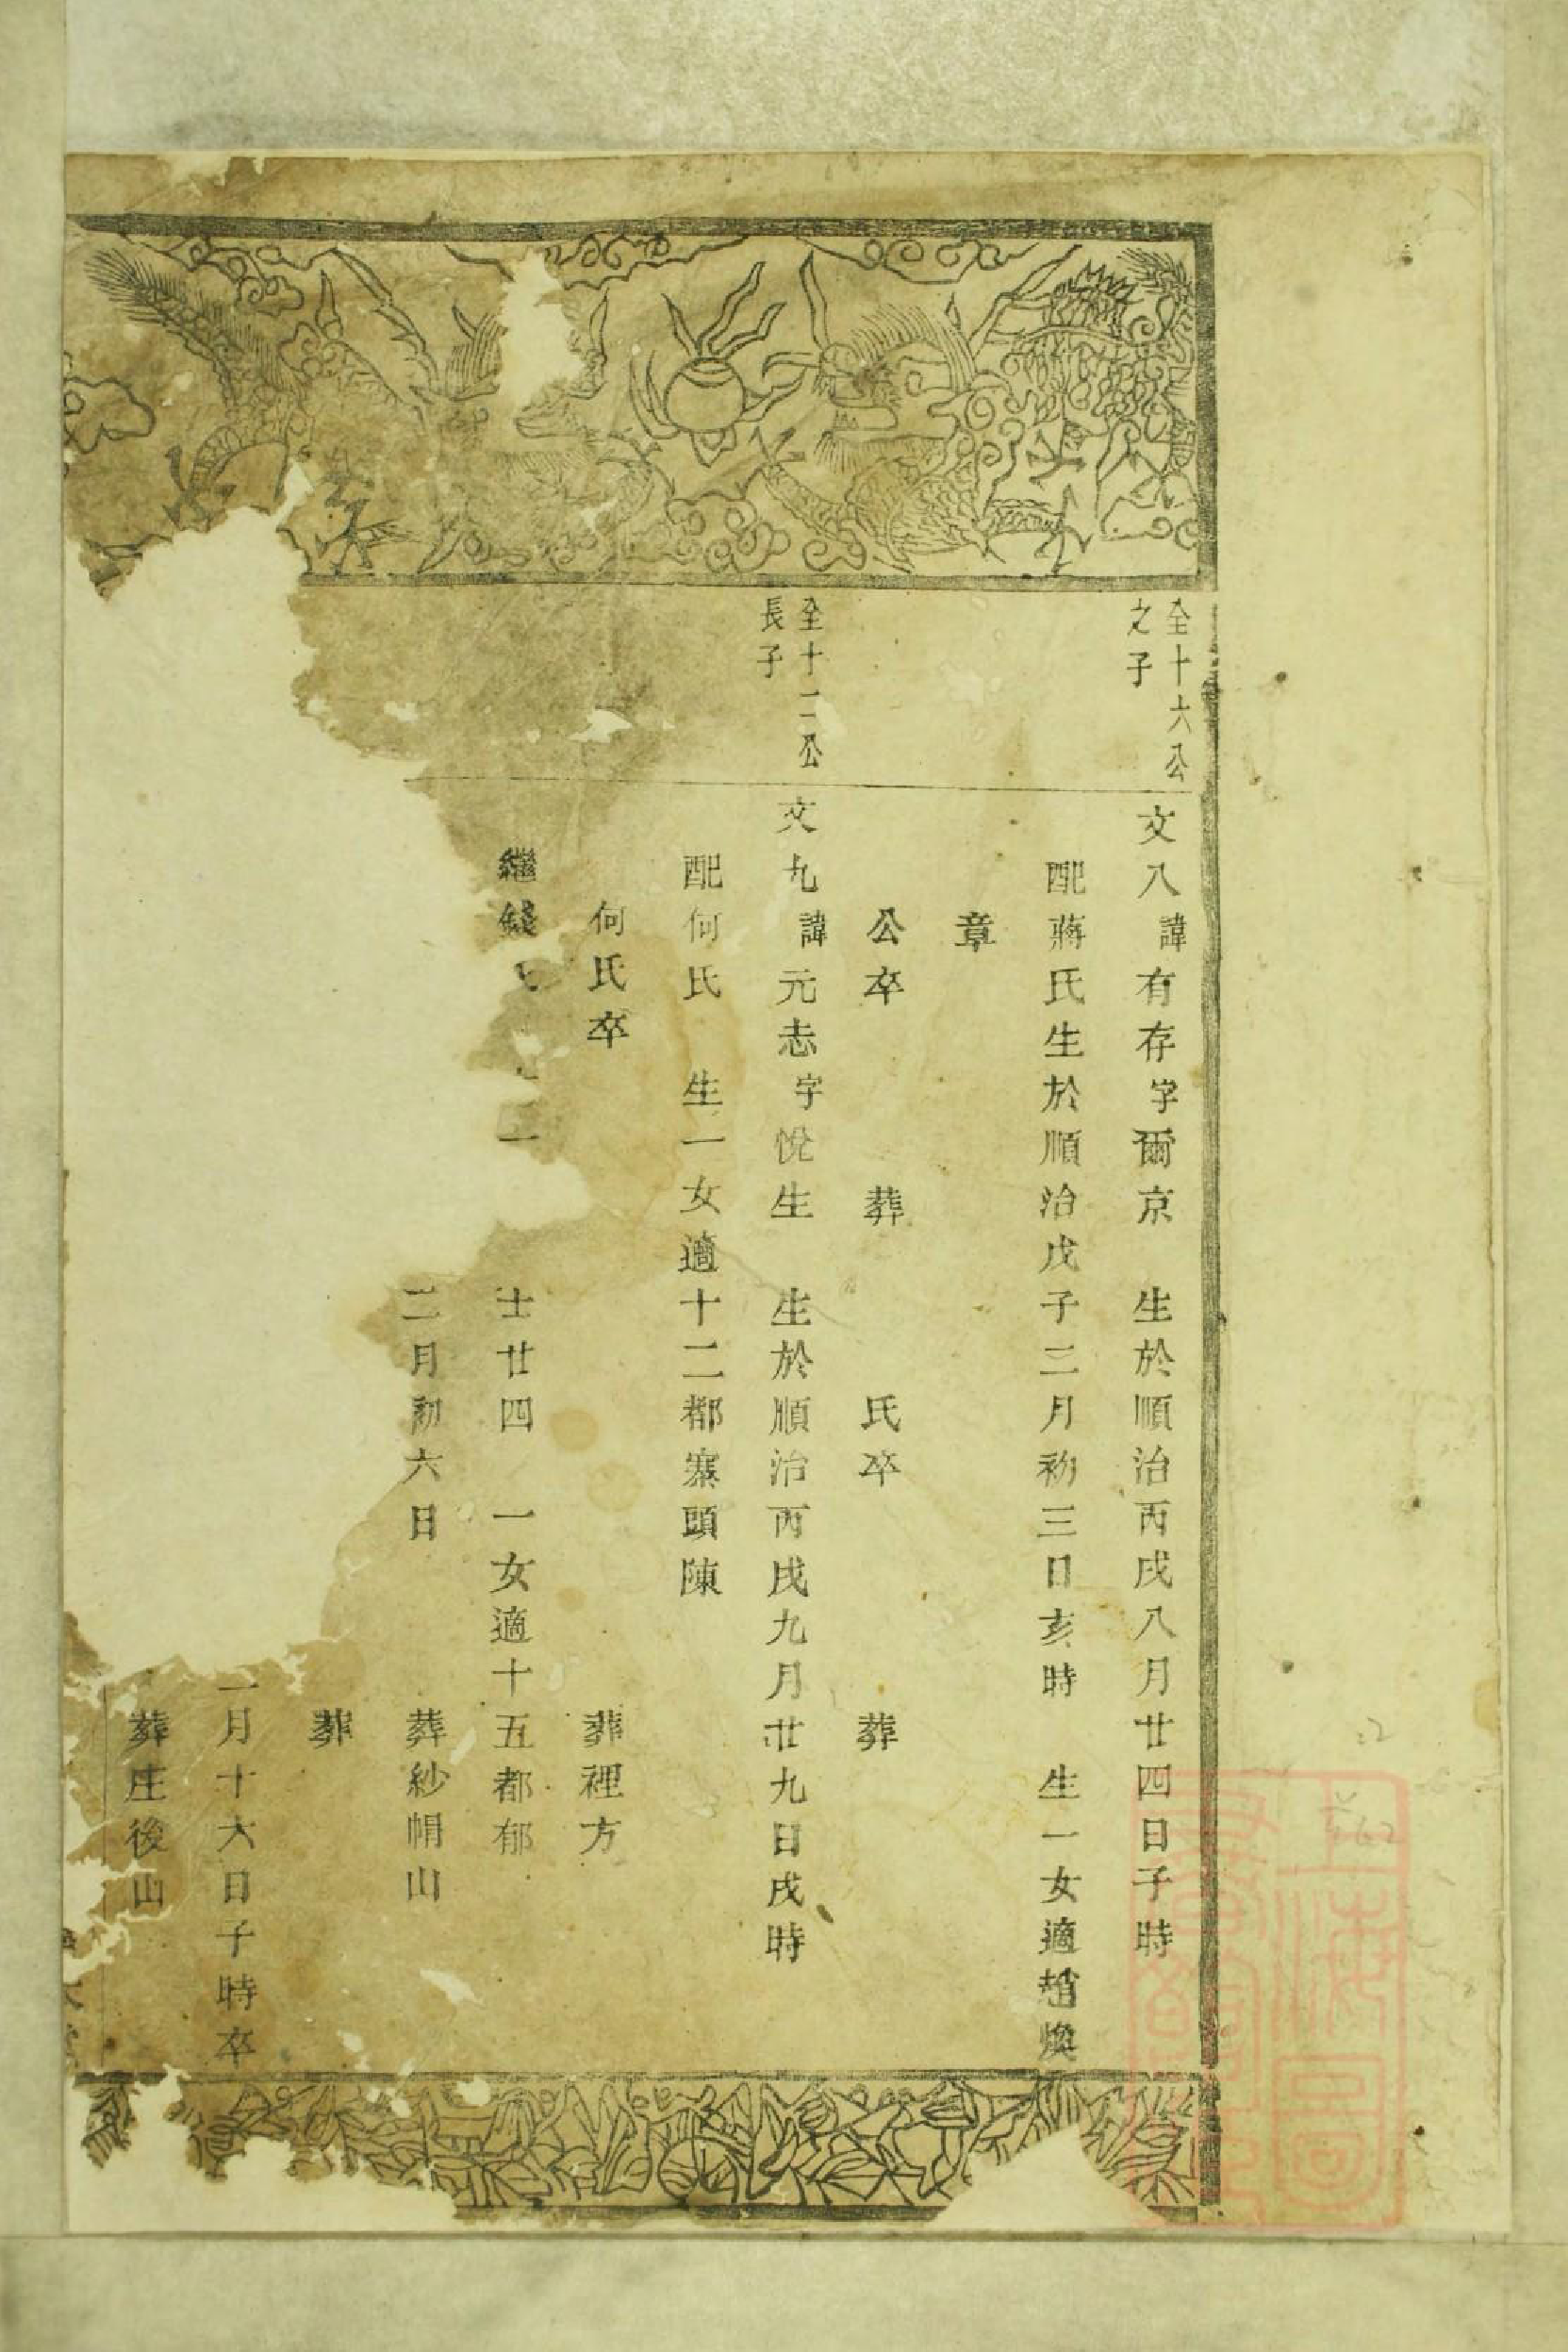 全十六公
之子
文八諱有存字爾京　生於順治丙戌八月廿四日子時
配蔣氏生於順治戊子二月初三日亥時　生一女適趙煥
章
公卒　葬　氏卒　葬
全十二公
長子
文九諱元志字悅生　生於順治丙戌九月廿九日戌時
配何氏　生一女適十二都寨頭陳
何氏卒　葬裡方
繼錢　一　士廿四　一女適十五都郁
二月初六日　葬紗帽山
葬
一月十六日子時卒
葬庄後山
上海圖
書館藏